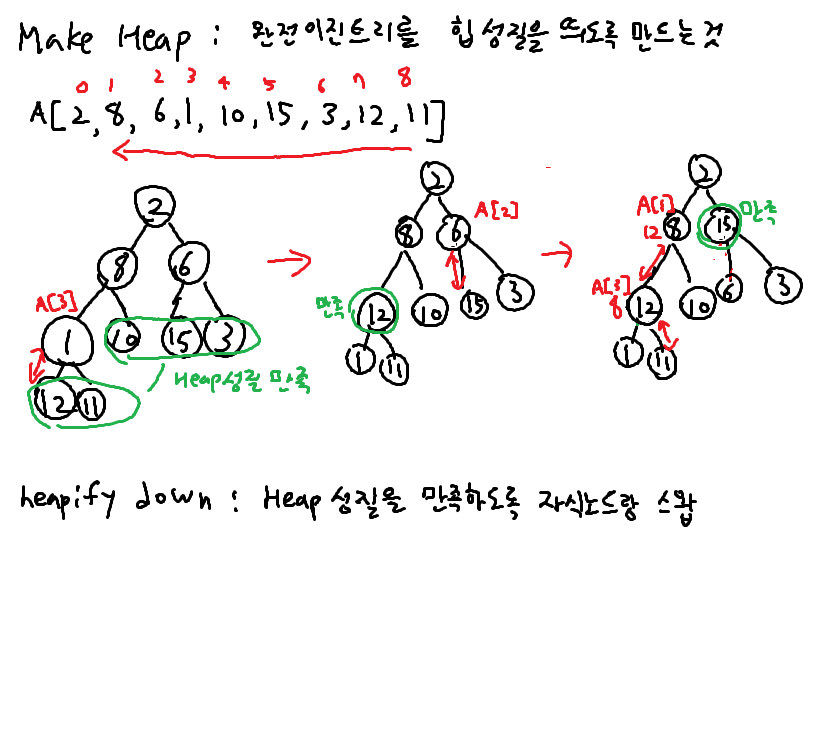 Make Heap : 완전이진트리를 힙성질을 띄도록 만드는것
0 1 2 3 4 5 6 7 8
A[2, 8, 6, 1, 10, 15, 3, 12, 11]
2
8 6
A[3]
1 10 15 3
12 11
Heap성질 만족
2
A[2]
8 6
만족 12 10 15 3
1 11
2
A[1] 만족
12 8 15
A[3]
8 12 10 6 3
1 11
heapify down : Heap 성질을 만족하도록 자식노드랑 스왑